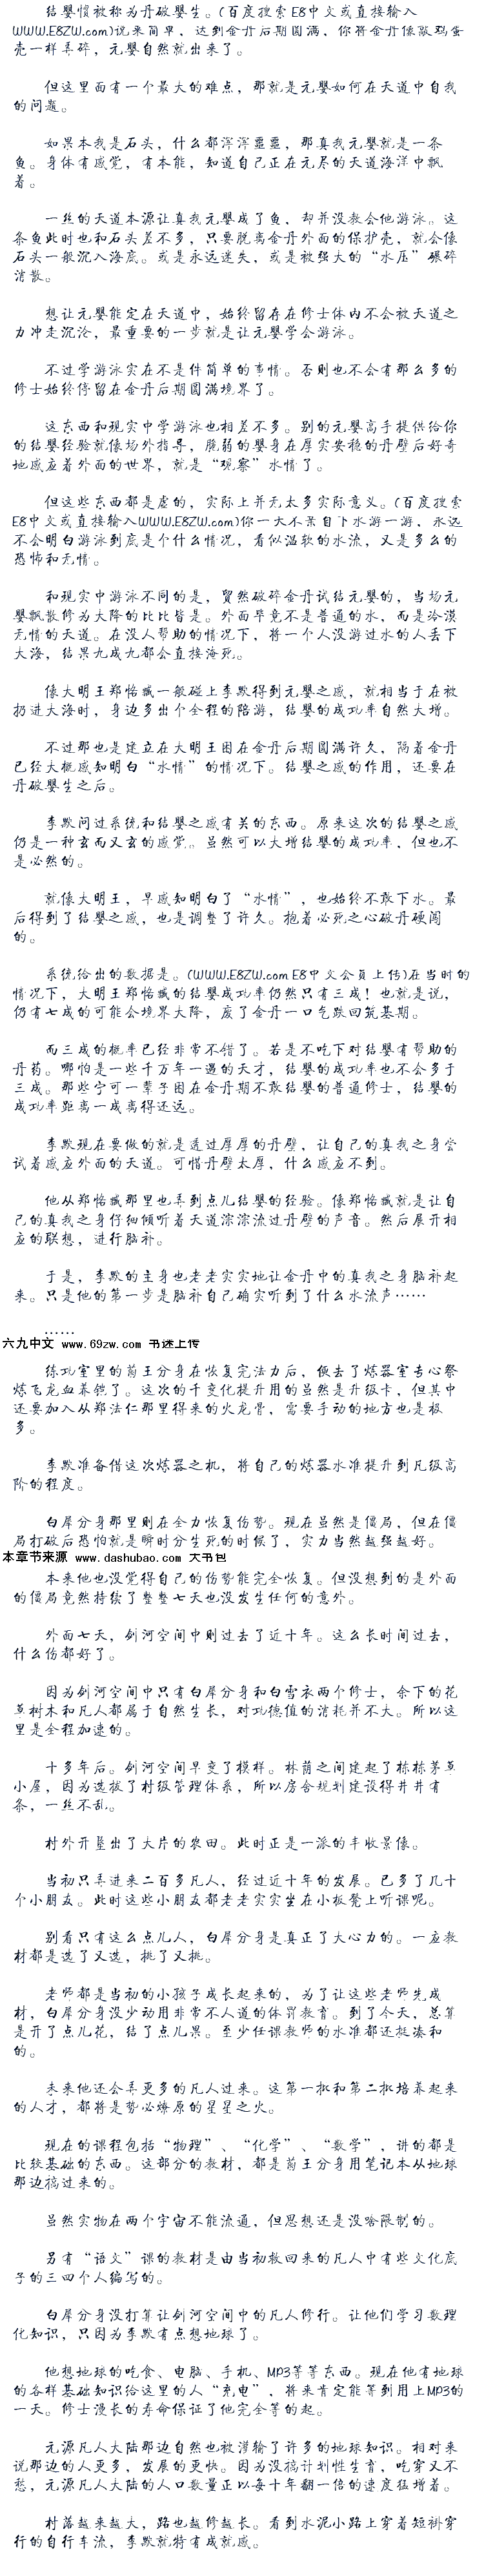 结婴惯被称为丹破婴生。(百度搜索E8中文或直接输入
WWW.E8ZW.com)说来简单，达到金丹后期圆满，你将金丹像敲鸡蛋
壳一样弄碎，元婴自然就出来了。
但这里面有一个最大的难点，那就是元婴如何在天道中自我
的问题。
如果本我是石头，什么都浑浑噩噩，那真我元婴就是一条
鱼。身体有感觉，有本能，知道自己正在无尽的天道海洋中飘
着。
一丝的天道本源让真我元婴成了鱼，却并没教会他游泳。这
条鱼此时也和石头差不多，只要脱离金丹外面的保护壳，就会像
石头一般沉入海底。或是永远迷失，或是被强大的“水压”碾碎
消散。
想让元婴能定在天道中，始终留存在修士体内不会被天道之
力冲走沉沦，最重要的一步就是让元婴学会游泳。
不过学游泳实在不是件简单的事情。否则也不会有那么多的
修士始终停留在金丹后期圆满境界了。
这东西和现实中学游泳也相差不多。别的元婴高手提供给你
的结婴经验就像场外指导，脆弱的婴身在厚实安稳的丹壁后好奇
地感应着外面的世界，就是“观察”水情了。
但这些东西都是虚的，实际上并无太多实际意义。(百度搜索
E8中文或直接输入WWW.E8ZW.com)你一天不亲自下水游一游，永远
不会明白游泳到底是个什么情况，看似温软的水流，又是多么的
恐怖和无情。
和现实中游泳不同的是，贸然破碎金丹试结元婴的，当场元
婴飘散修为大降的比比皆是。外面毕竟不是普通的水，而是冷漠
无情的天道。在没人帮助的情况下，将一个人没游过水的人丢下
大海，结果九成九都会直接淹死。
像大明王郑恪臧一般碰上李默得到元婴之感，就相当于在被
扔进大海时，身边多出个全程的陪游，结婴的成功率自然大增。
不过那也是建立在大明王困在金丹后期圆满许久，隔着金丹
已经大概感知明白“水情”的情况下。结婴之感的作用，还要在
丹破婴生之后。
李默问过系统和结婴之感有关的东西。原来这次的结婴之感
仍是一种玄而又玄的感觉。虽然可以大增结婴的成功率，但也不
是必然的。
就像大明王，早感知明白了“水情”，也始终不敢下水。最
后得到了结婴之感，也是调整了许久。抱着必死之心破丹硬闯
的。
系统给出的数据是。(WWW.E8ZW.com E8中文会员上传)在当时的
情况下，大明王郑恪臧的结婴成功率仍然只有三成！也就是说，
仍有七成的可能会境界大降，废了金丹一口气跌回筑基期。
而三成的概率已经非常不错了。若是不吃下对结婴有帮助的
丹药。哪怕是一些千万年一遇的天才，结婴的成功率也不会多于
三成。那些宁可一辈子困在金丹期不敢结婴的普通修士，结婴的
成功率距离一成离得还远。
李默现在要做的就是透过厚厚的丹壁，让自己的真我之身尝
试着感应外面的天道。可惜丹壁太厚，什么感应不到。
他从郑恪臧那里也弄到点儿结婴的经验。像郑恪臧就是让自
己的真我之身仔细倾听着天道淙淙流过丹壁的声音。然后展开相
应的联想，进行脑补。
于是，李默的主身也老老实实地让金丹中的真我之身脑补起
来。只是他的第一步是脑补自己确实听到了什么水流声……
……
六九中文 www.69zw.com 书迷上传
练功室里的荀王分身在恢复完法力后，便去了炼器室专心祭
炼飞龙血养铠了。这次的千变化提升用的虽然是升级卡，但其中
还要加入从郑法仁那里得来的火龙骨，需要手动的地方也是极
多。
李默准备借这次炼器之机，将自己的炼器水准提升到凡级高
阶的程度。
白犀分身那里则在全力恢复伤势。现在虽然是僵局，但在僵
局打破后恐怕就是瞬时分生死的时候了，实力当然越强越好。
本章节来源 www.dashubao.com 大书包
本来他也没觉得自己的伤势能完全恢复。但没想到的是外面
的僵局竟然持续了整整七天也没发生任何的意外。
外面七天，剑河空间中则过去了近十年。这么长时间过去，
什么伤都好了。
因为剑河空间中只有白犀分身和白雪衣两个修士，余下的花
草树木和凡人都属于自然生长，对功德值的消耗并不大。所以这
里是全程加速的。
十多年后。剑河空间早变了模样。林荫之间建起了栋栋茅草
小屋，因为选拔了村级管理体系，所以房舍规划建设得井井有
条，一丝不乱。
村外开垦出了大片的农田。此时正是一派的丰收景像。
当初只弄进来二百多凡人，经过近十年的发展。已多了几十
个小朋友。此时这些小朋友都老老实实坐在小板凳上听课呢。
别看只有这么点儿人，白犀分身是真正了大心力的。一应教
材都是选了又选，挑了又挑。
老师都是当初的小孩子成长起来的，为了让这些老师先成
材，白犀分身没少动用非常不人道的体罚教育。到了今天，总算
是开了点儿花，结了点儿果。至少任课教师的水准都还挺凑和
的。
未来他还会弄更多的凡人过来。这第一批和第二批培养起来
的人才，都将是势必燎原的星星之火。
现在的课程包括“物理”、“化学”、“数学”，讲的都是
比较基础的东西。这部分的教材，都是荀王分身用笔记本从地球
那边搞过来的。
虽然实物在两个宇宙不能流通，但思想还是没啥限制的。
另有“语文”课的教材是由当初救回来的凡人中有些文化底
子的三四个人编写的。
白犀分身没打算让剑河空间中的凡人修行。让他们学习数理
化知识，只因为李默有点想地球了。
他想地球的吃食、电脑、手机、MP3等等东西。现在他有地球
的各样基础知识给这里的人“充电”，将来肯定能等到用上MP3的
一天。修士漫长的寿命保证了他完全等的起。
元源凡人大陆那边自然也被灌输了许多的地球知识。相对来
说那边的人更多，发展的更快。因为没搞计划性生育，吃穿又不
愁，元源凡人大陆的人口数量正以每十年翻一倍的速度猛增着。
村落越来越大，路也越修越长。看到水泥小路上穿着短褂穿
行的自行车流，李默就特有成就感。